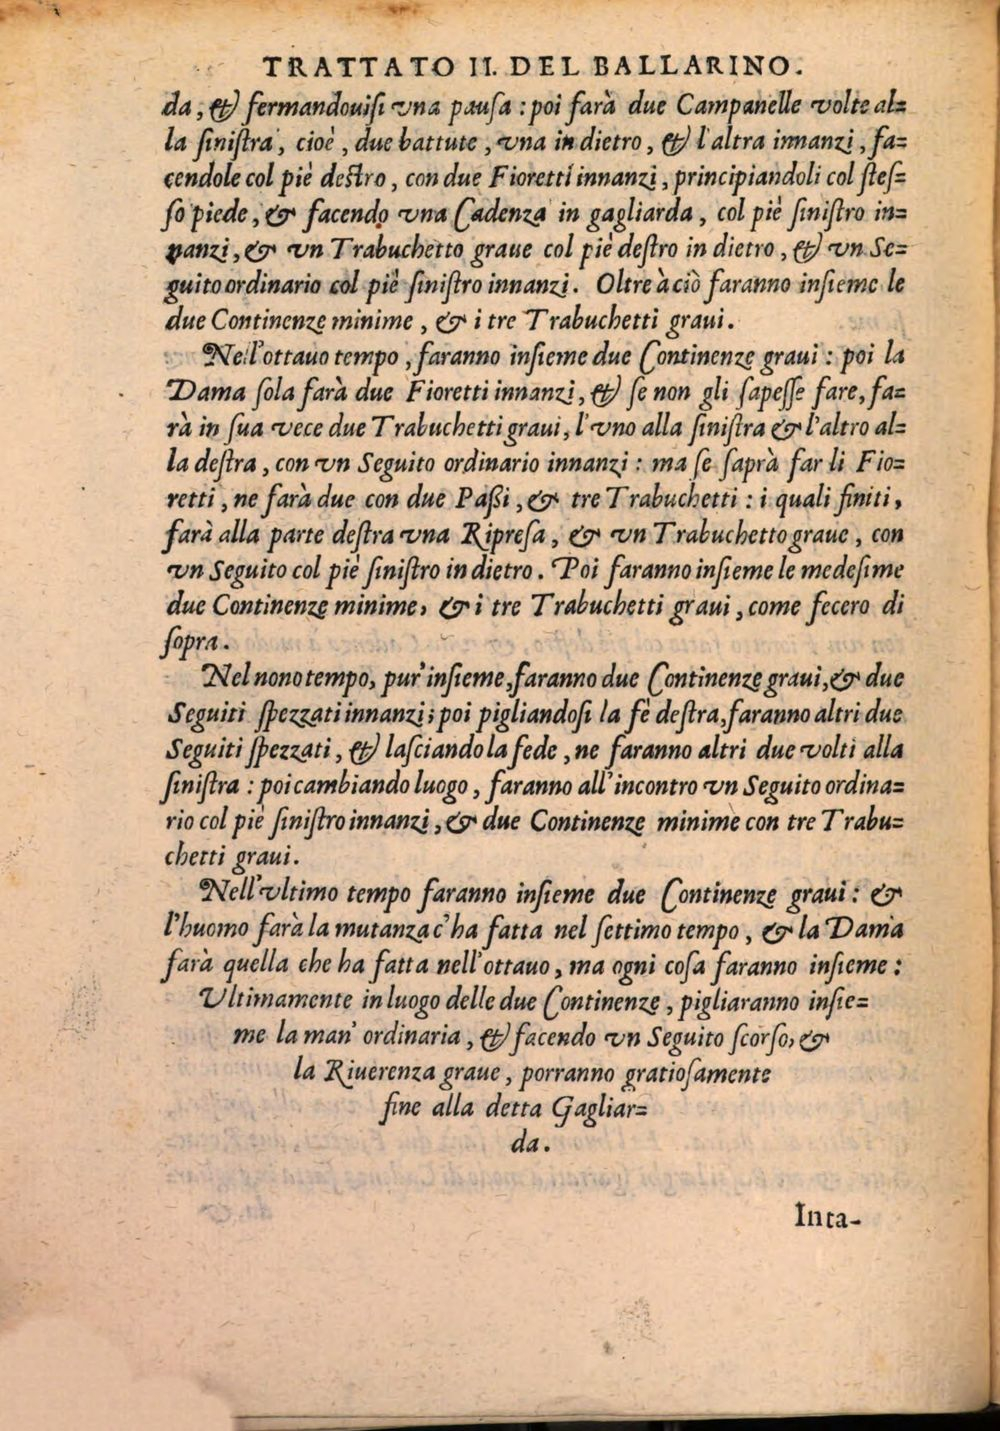 TRATTATO II. DEL BALLARINO.
da, & fermandouiſi vna pauſa : poi farà due Campanelle volte al=
la ſiniſtra, cioè, due battute, vna in dietro, & l'altra innanzi, fa=
cendole col piè deſtro, con due Fioretti innanzi, principiandoli col ſteſ=
ſo piede, & facendo vna Cadenza in gagliarda, col piè ſiniſtro in=
nanzi, & vn Trabuchetto graue col piè deſtro in dietro, & vn Se=
guito ordinario col piè ſiniſtro innanzi. Oltre à ciò faranno inſieme le
due Continenze minime, & i tre Trabuchetti graui.
Nell'ottauo tempo, faranno inſieme due Continenze graui : poi la
Dama ſola farà due Fioretti innanzi, & ſe non gli ſapeſſe fare, fa=
rà in ſua vece due Trabuchetti graui, l'vno alla ſiniſtra & l'altro al=
la deſtra, con vn Seguito ordinario innanzi : ma ſe ſaprà far li Fio=
retti, ne farà due con due Paßi, & tre Trabuchetti : i quali finiti,
farà alla parte deſtra vna Ripreſa, & vn Trabuchetto graue, con
vn Seguito col piè ſiniſtro in dietro. Poi faranno inſieme le medeſime
due Continenze minime, & i tre Trabuchetti graui, come fecero di
ſopra.
Nel nono tempo, pur' inſieme, faranno due Continenze graui, & due
Seguiti ſpezzati innanzi; poi pigliandoſi la fè deſtra, faranno altri due
Seguiti ſpezzati, & laſciando la fede, ne faranno altri due volti alla
ſiniſtra : poi cambiando luogo, faranno all'incontro vn Seguito ordina=
rio col piè ſiniſtro innanzi, & due Continenze minime con tre Trabu=
chetti graui.
Nell'vltimo tempo faranno inſieme due Continenze graui : &
l'huomo farà la mutanza c'ha fatta nel ſettimo tempo, & la Dama
farà quella che ha fatta nell'ottauo, ma ogni coſa faranno inſieme :
Vltimamente in luogo delle due Continenze, pigliaranno inſie=
me la man' ordinaria, & facendo vn Seguito ſcorſo, &
la Riuerenza graue, porranno gratioſamente
fine alla detta Gagliar=
da.
Inta-